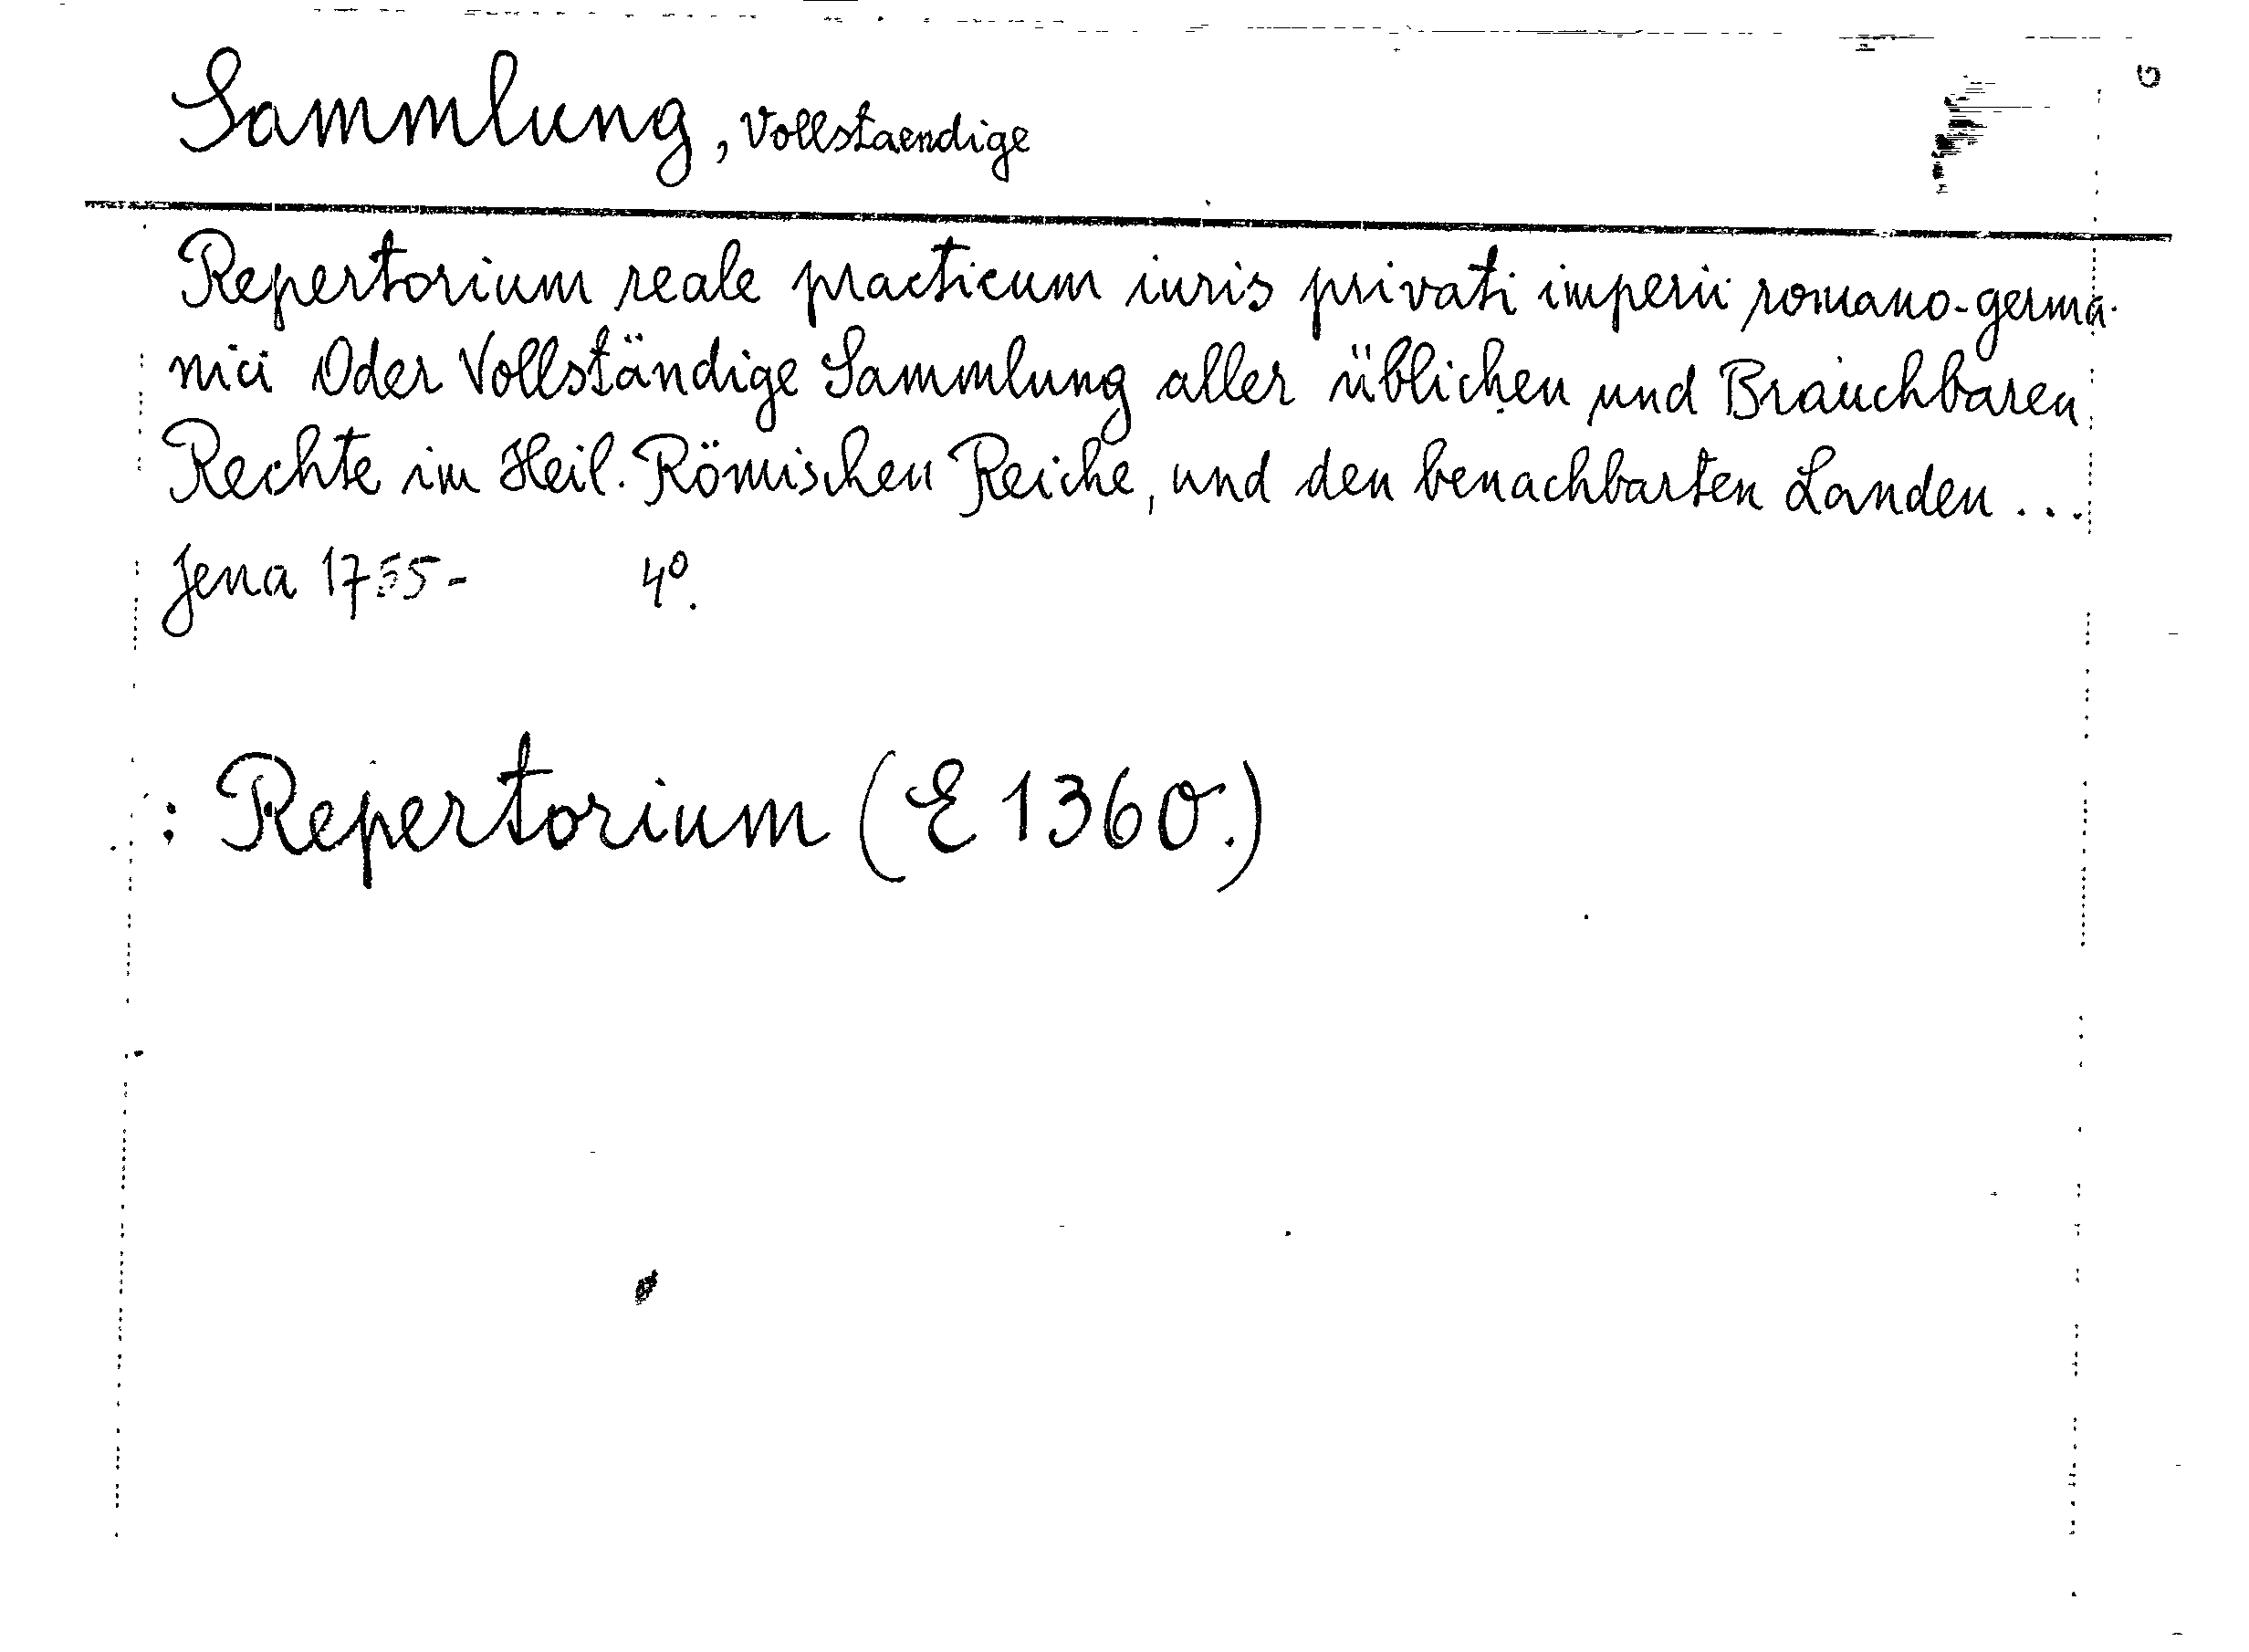 Sammlung, Vollstaendige
Repertorium reale practicum iuris privati imperii romano-germa-
nici Oder Vollständige Sammlung aller üblichen und Brauchbaren
Rechte im Heil. Römischen Reiche, und den benachbarten Landen...
Jena 1755- 4°.
: Repertorium (E 1360.)